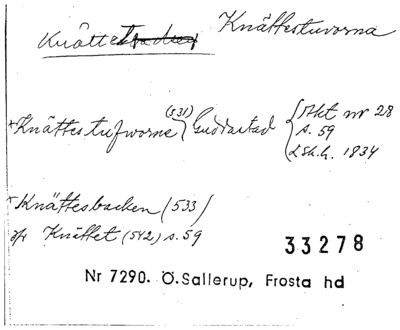 Knättestuvorna
Knätte
+Knättestufworne (531) } Gudastad { Akt nr 28
s. 59
L.Sk.h. 1834
+Knättesbacken (533)
jfr Knättet (542) s. 59
33278
Nr 7290. Ö.Sallerup, Frosta hd